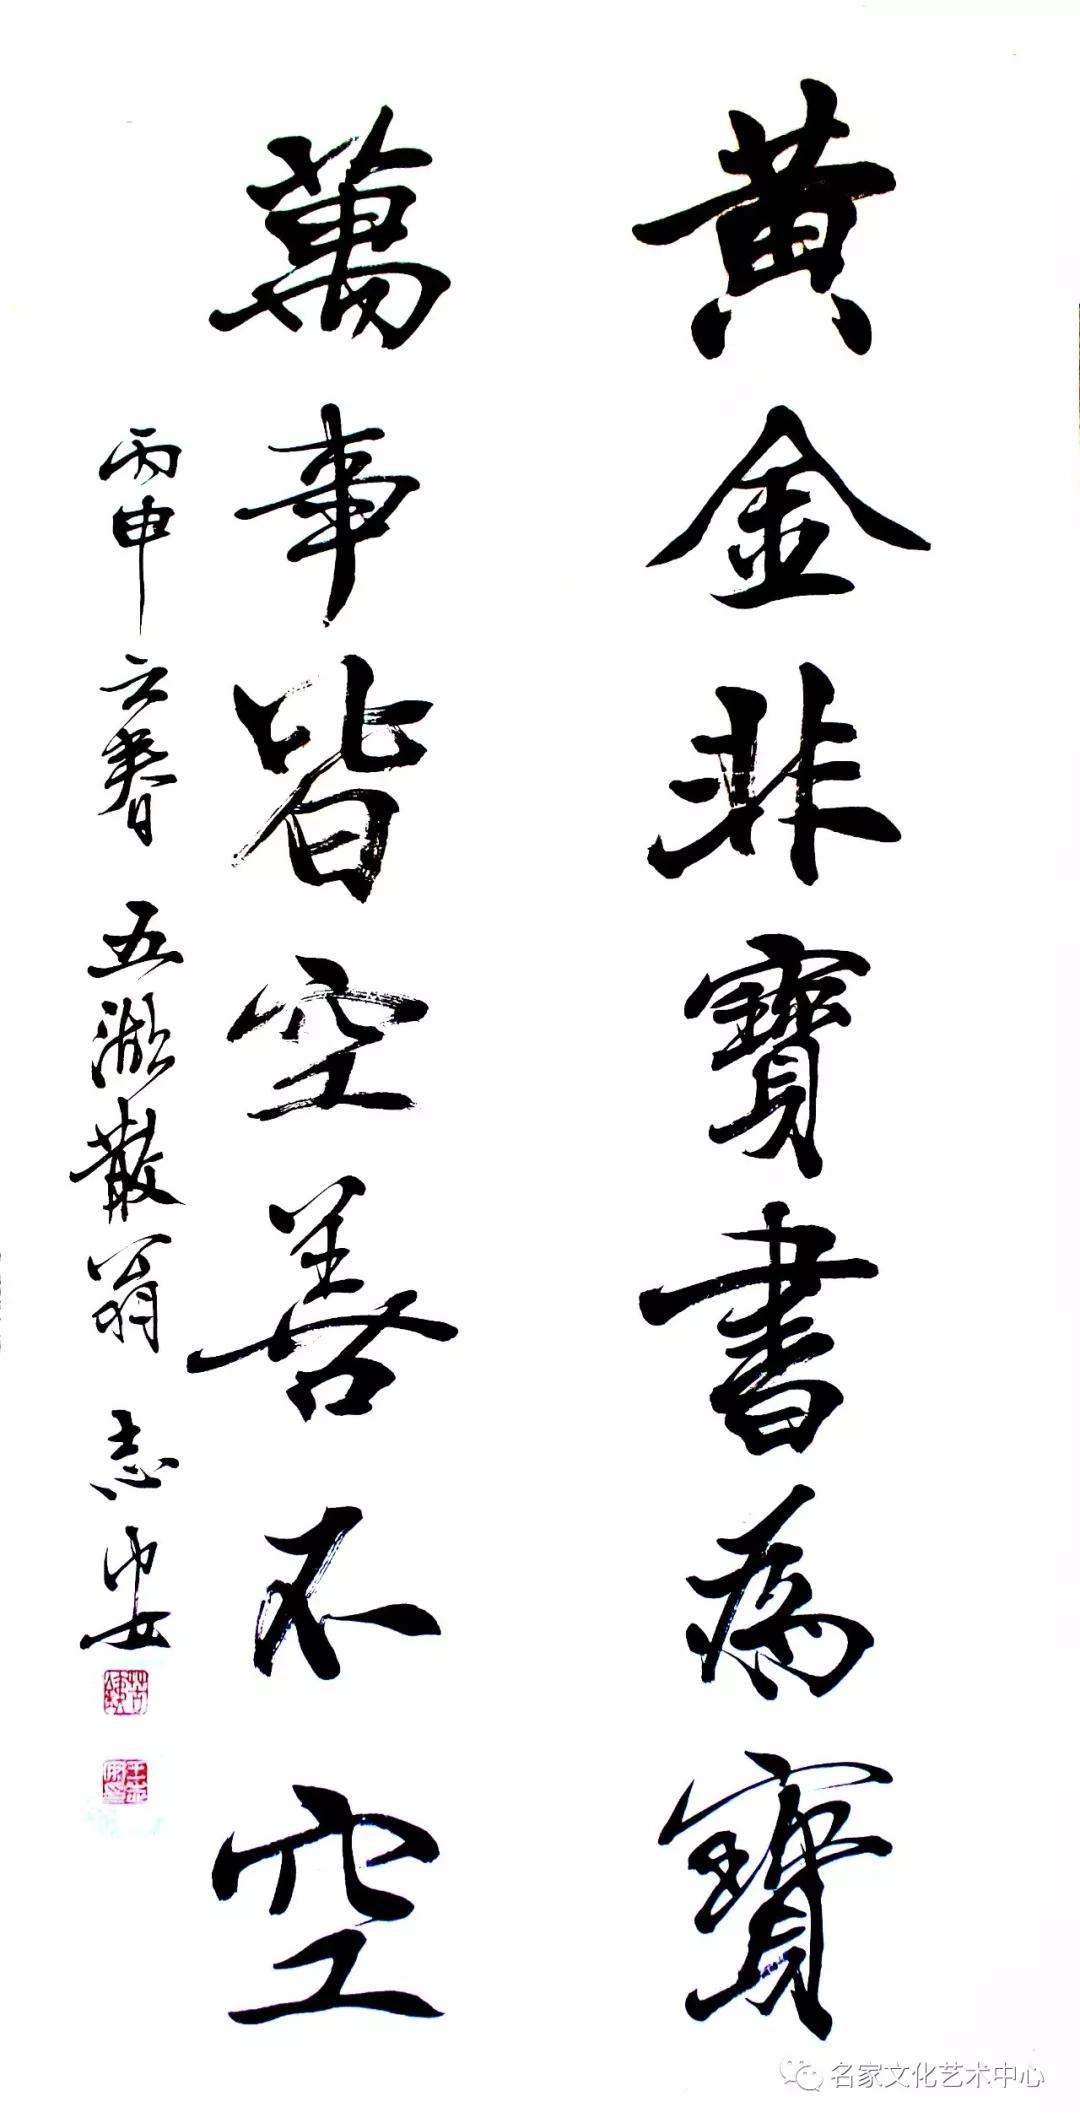 黄金非寶書為寶
萬事皆空善不空
丙申立春 五湖散翁 志安
名家文化艺术中心